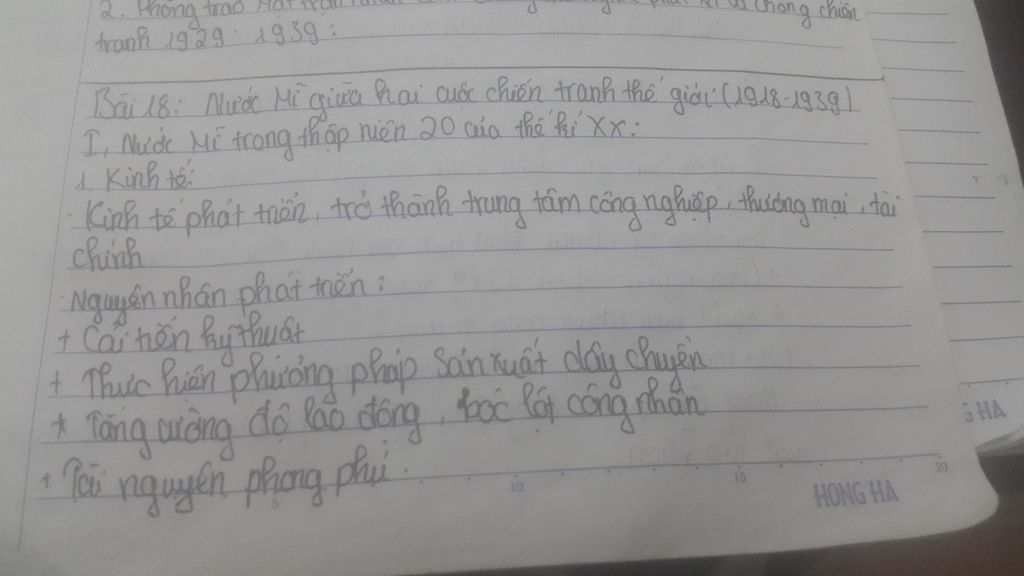 2. Phong trào Mặt trận nhân
chống chiến
tranh 1929 - 1939:
Bài 18: Nước Mĩ giữa hai cuộc chiến tranh thế giới (1918-1939)
I, Nước Mĩ trong thập niên 20 của thế kỉ XX:
1. Kinh tế:
- Kinh tế phát triển, trở thành trung tâm công nghiệp, thương mại, tài
chính
- Nguyên nhân phát triển:
+ Cải tiến kỹ thuật
+ Thực hiện phương pháp sản xuất dây chuyền
+ Tăng cường độ lao động, bóc lột công nhân
+ Tài nguyên phong phú.
5 10 15 20
HONG HA
G HA